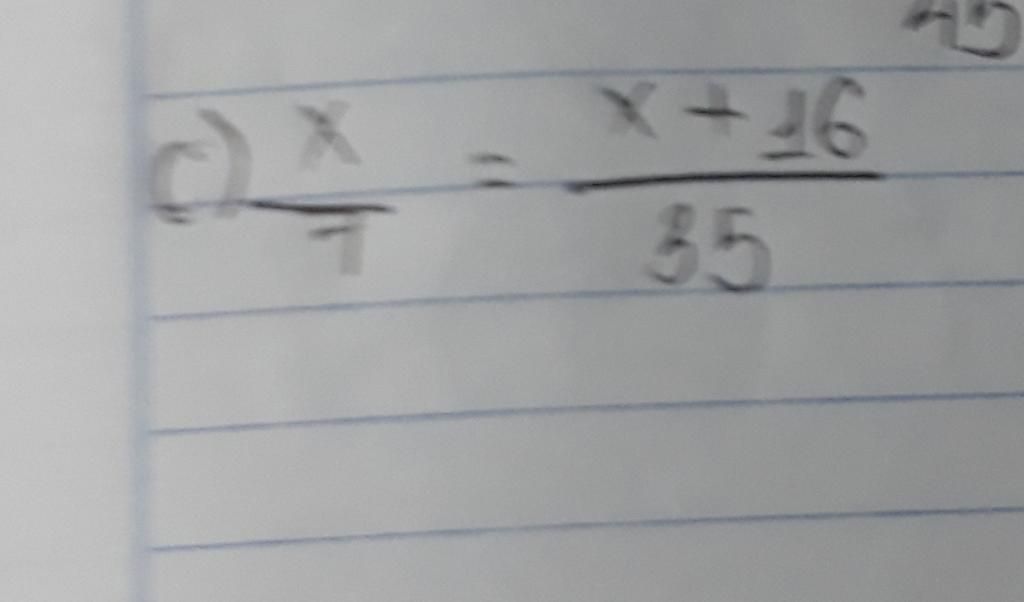 c) x/7 = x + 16/35